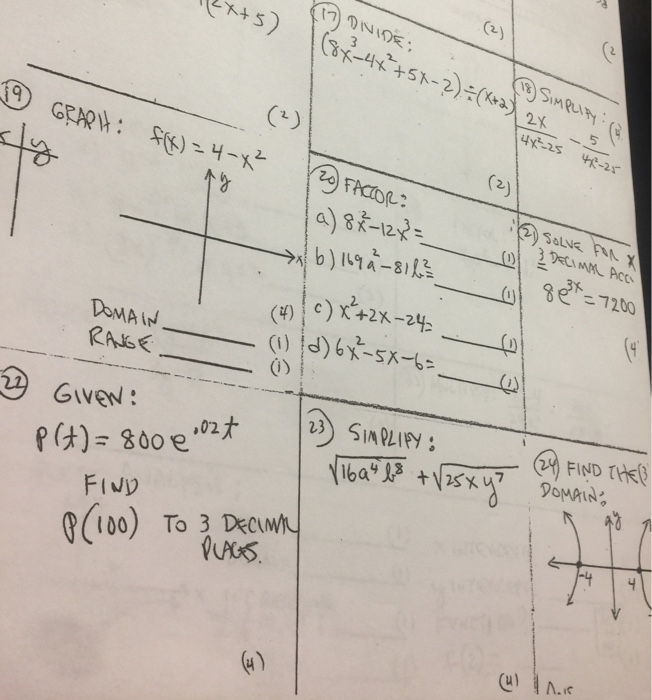 (2x+5)
(17) DIVIDE:
(8x³-4x²+5x-2)÷(x+2)
(2)
(2
(18) SIMPLIFY:
2x/4x²-25 - 5/4x²-25
(19)
GRAPH:
(2)
f(x) = 4-x²
y
y
x
DOMAIN ______ (4)
RANGE ______ (1)
______ (1)
(20) FACTOR:
(2)
a) 8x²-12x³= ______ (1)
b) 169a²-81b²= ______ (1)
c) x²+2x-24= ______ (1)
d) 6x²-5x-6= ______ (1)
(21) SOLVE FOR X
3 DECIMAL ACC
8e³ˣ = 7200
(4
(22) GIVEN:
P(t) = 800e^.02t
FIND
P(100) TO 3 DECIMAL
PLACES.
(4)
23) SIMPLIFY:
√16a⁴b⁸ + √25xy⁷
(4)
(24) FIND THE
DOMAIN:
y
-4
4